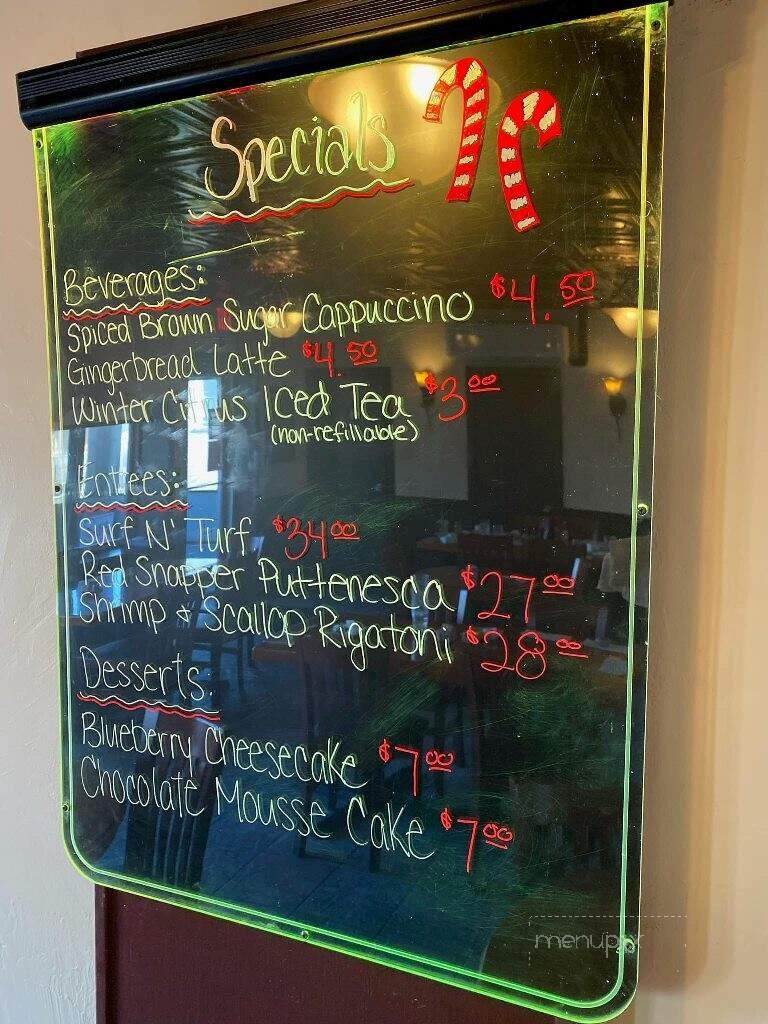 Specials
Beverages:
Spiced Brown Sugar Cappuccino $4.50
Gingerbread Latte $4.50
Winter Citrus Iced Tea $3.00
(non-refillable)
Entrees:
Surf N' Turf $34.00
Red Snapper Puttenesca $27.00
Shrimp + Scallop Rigatoni $28.00
Desserts:
Blueberry Cheesecake $7.00
Chocolate Mousse Cake $7.00
menupix